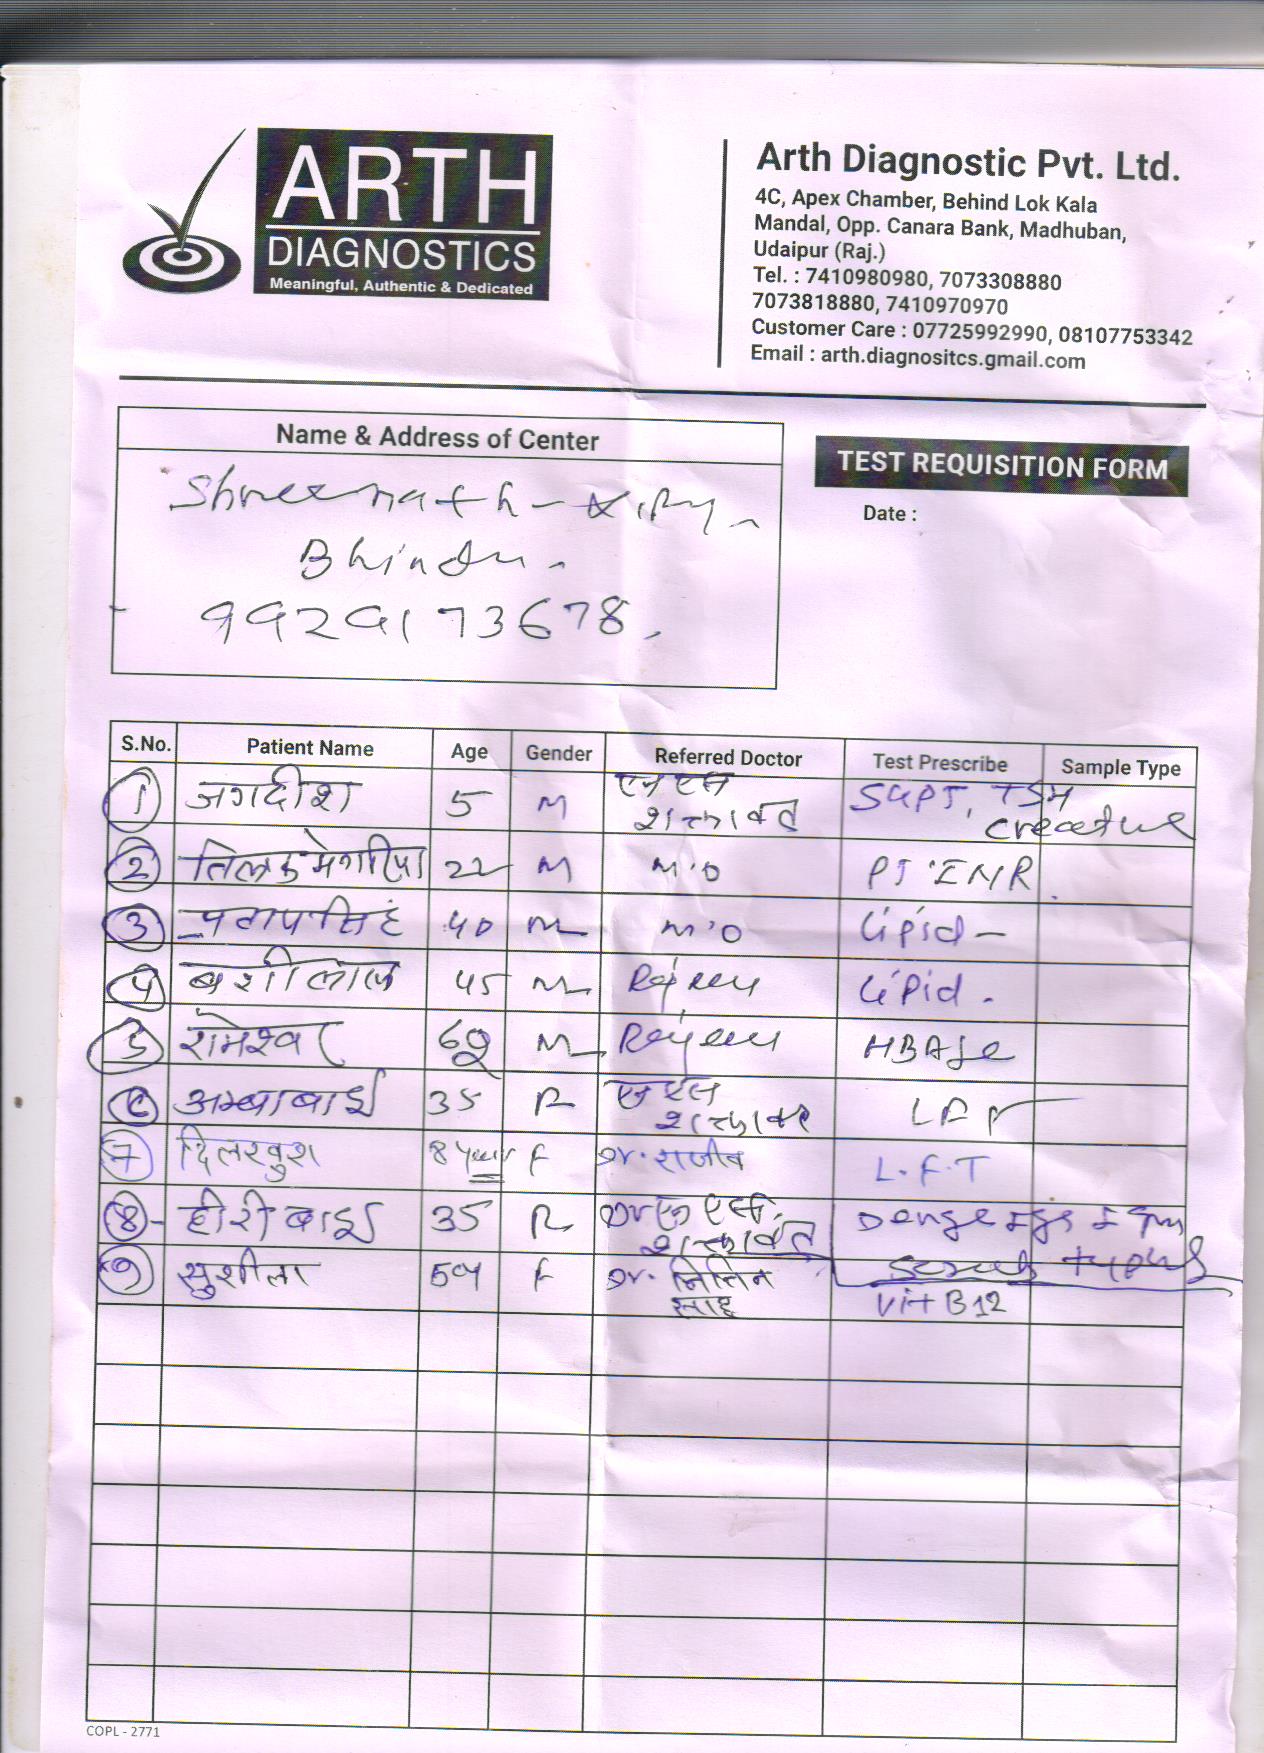 ARTH
DIAGNOSTICS
Meaningful, Authentic & Dedicated
Arth Diagnostic Pvt. Ltd.
4C, Apex Chamber, Behind Lok Kala
Mandal, Opp. Canara Bank, Madhuban,
Udaipur (Raj.)
Tel. : 7410980980, 7073308880
7073818880, 7410970970
Customer Care : 07725992990, 08107753342
Email : arth.diagnositcs.gmail.com
Name & Address of Center
TEST REQUISITION FORM
Date :
Shreenath
9929173678.
S.No. Patient Name Age Gender Referred Doctor Test Prescribe Sample Type
1 जगदीश 5 M एन एस SGPT, TSH
शक्तावत
2 22 M M.O PT INR
3 प्रतापसिंह 40 M M.O Lipid -
4 45 M Lipid -
5 रामेश्वर M
6 अम्बाबाई 35 एन एस
7 दिलखुश 8 year F Dr. राजीव L.F.T
8 - हीरीबाई 35 Dr एन एस.
शक्तावत
typhs
9 सुशीला F Dr. नितिन
साहू
Vit B12
COPL - 2771